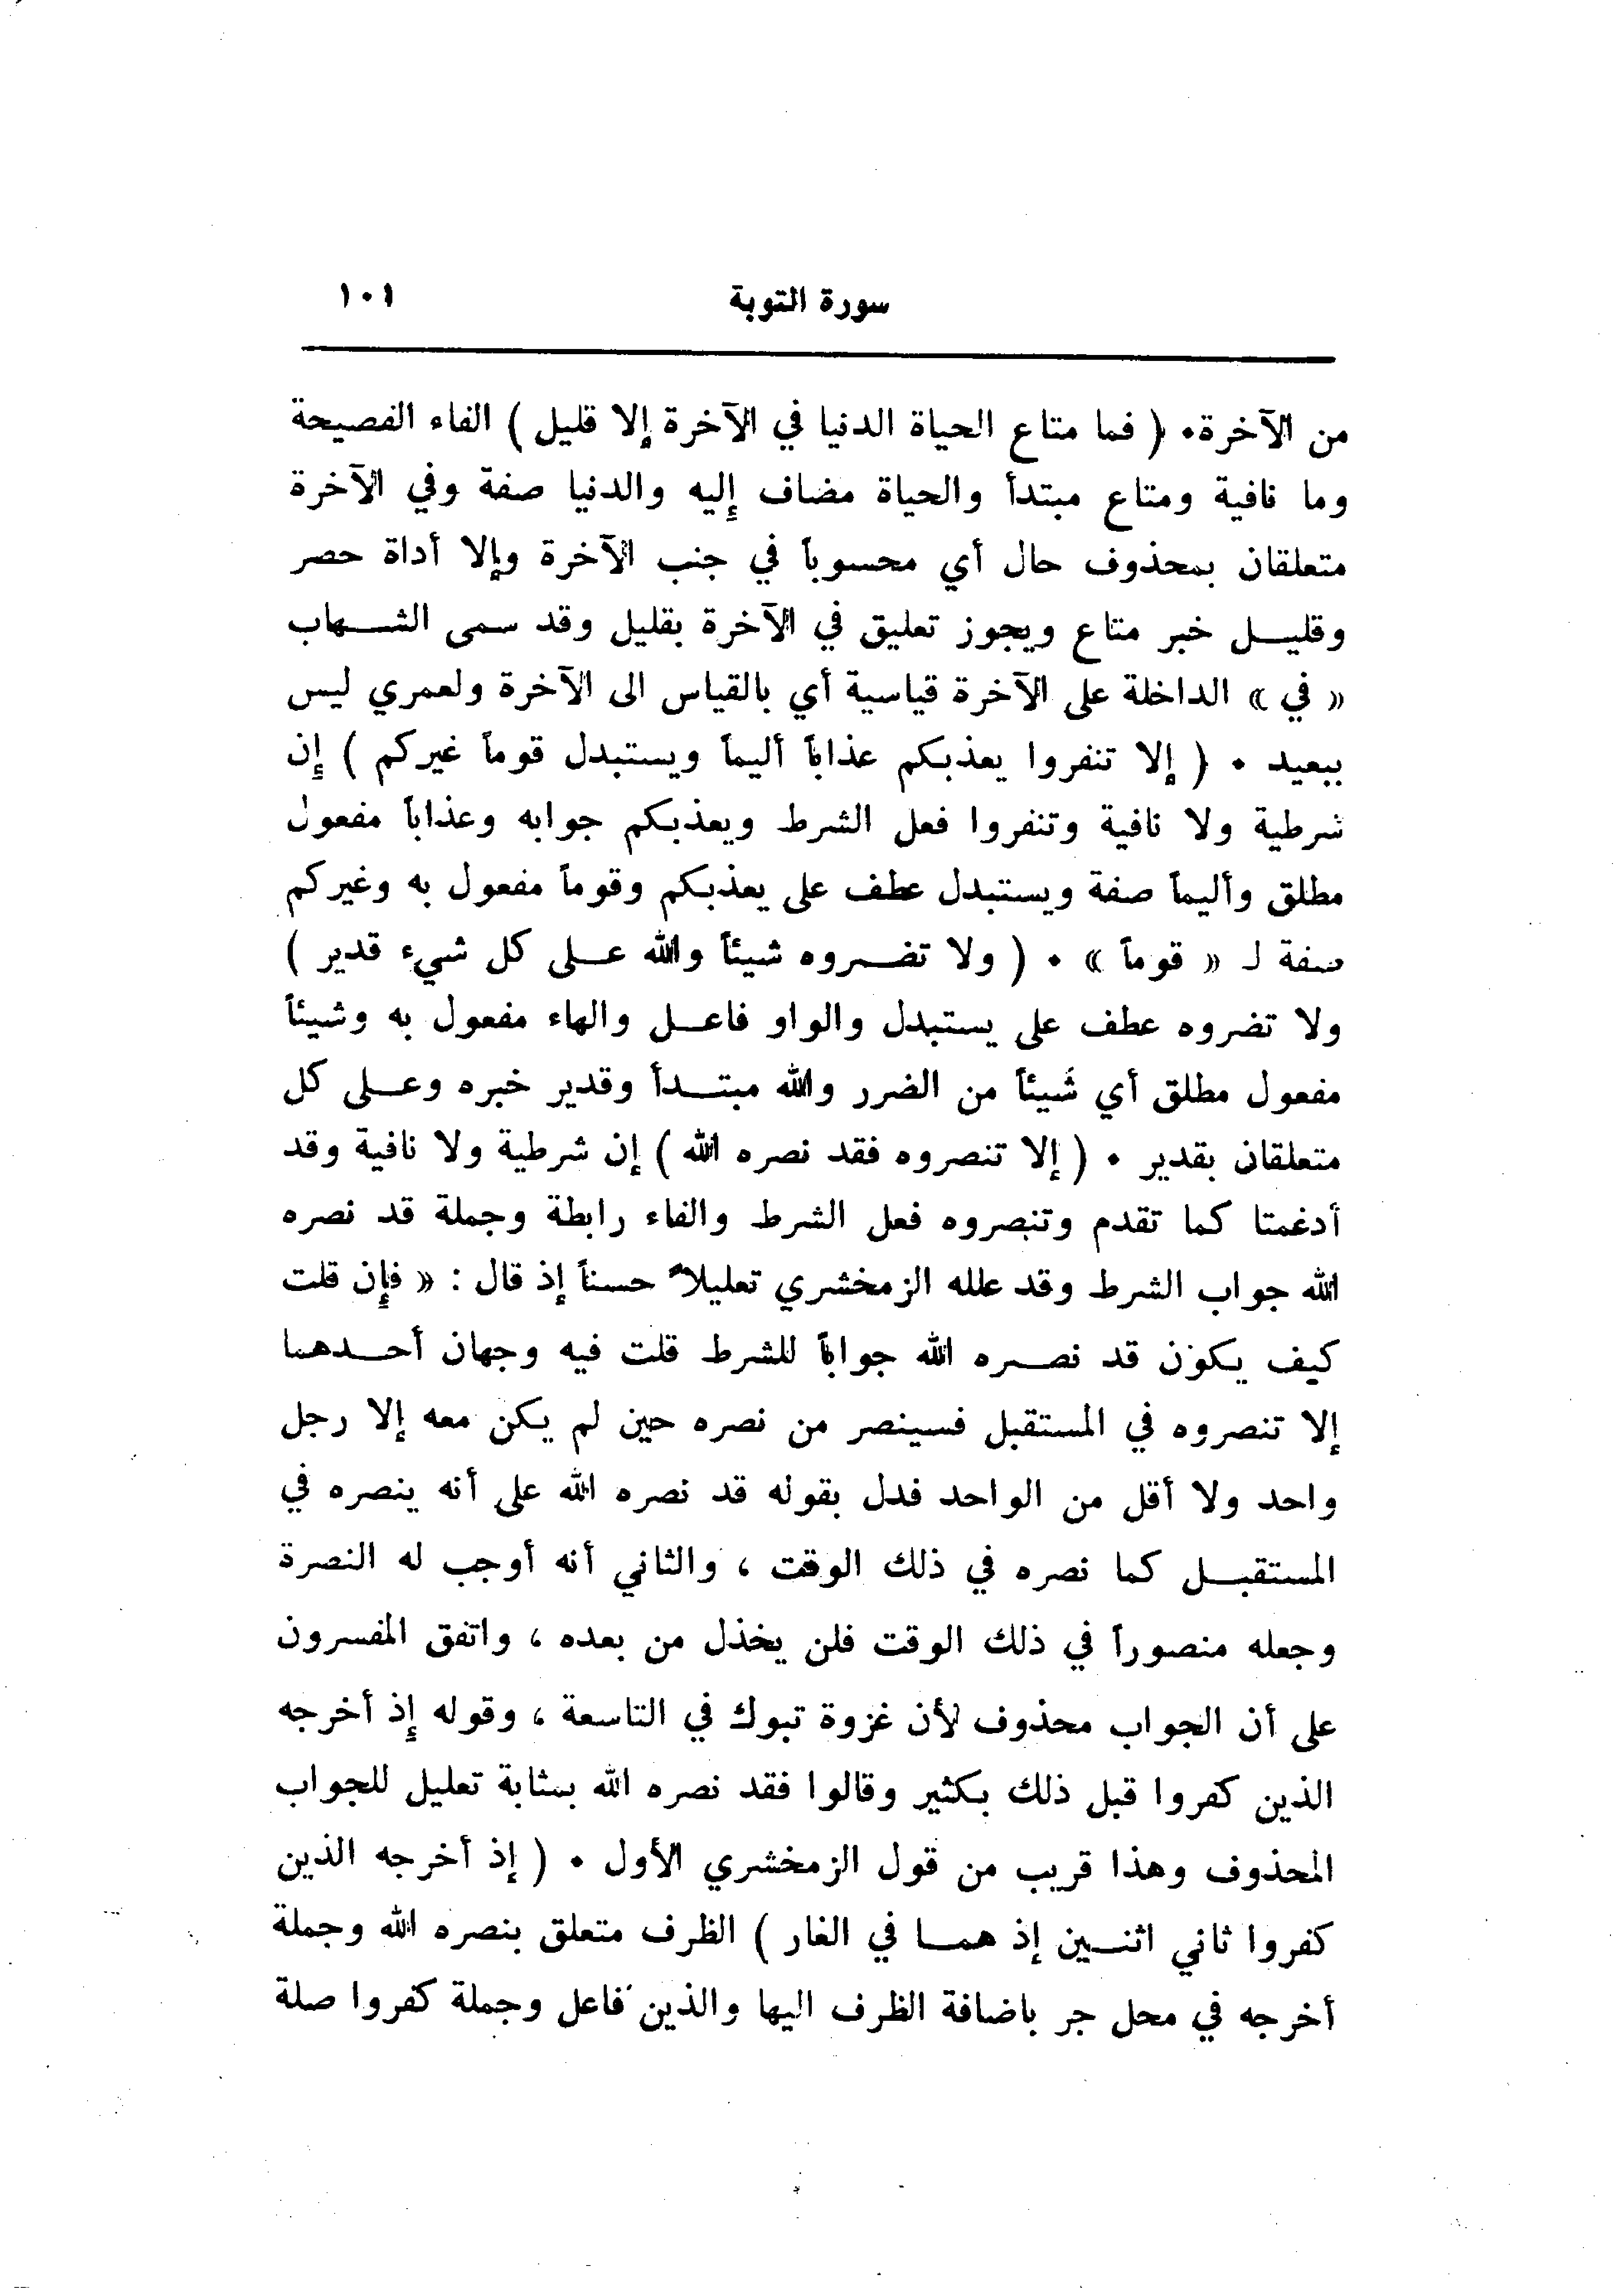 سورة التوبة ١٠١
من الآخرة. ( فما متاع الحياة الدنيا في الآخرة إلا قليل ) الفاء الفصيحة
وما نافية ومتاع مبتدأ والحياة مضاف إليه والدنيا صفة وفي الآخرة
متعلقان بمحذوف حال أي محسوباً في جنب الآخرة وإلا أداة حصر
وقليـل خبر متاع ويجوز تعليق في الآخرة بقليل وقد سمى الشـهاب
« في » الداخلة على الآخرة قياسية أي بالقياس الى الآخرة ولعمري ليس
ببعيد . ( إلا تنفروا يعذبكم عذاباً أليماً ويستبدل قوماً غيركم ) إن
شرطية ولا نافية وتنفروا فعل الشرط ويعذبكم جوابه وعذاباً مفعول
مطلق وأليماً صفة ويستبدل عطف على يعذبكم وقوماً مفعول به وغيركم
صفة لـ « قوماً » . ( ولا تضـروه شيئاً والله عـلى كل شيء قدير )
ولا تضروه عطف على يستبدل والواو فاعـل والهاء مفعول به وشيئاً
مفعول مطلق أي شَيئاً من الضرر والله مبتـدأ وقدير خبره وعـلى كل
متعلقان بقدير . ( إلا تنصروه فقد نصره الله ) إن شرطية ولا نافية وقد
أدغمتا كما تقدم وتنصروه فعل الشرط والفاء رابطة وجملة قد نصره
الله جواب الشرط وقد علله الزمخشري تعليلاً حسناً إذ قال : « فإن قلت
كيف يكون قد نصـره الله جواباً للشرط قلت فيه وجهان أحـدهما
إلا تنصروه في المستقبل فسينصر من نصره حين لم يكن معه إلا رجل
واحد ولا أقل من الواحد فدل بقوله قد نصره الله على أنه ينصره في
المستقبـل كما نصره في ذلك الوقت ، والثاني أنه أوجب له النصرة
وجعله منصوراً في ذلك الوقت فلن يخذل من بعده ، واتفق المفسرون
على أن الجواب محذوف لأن غزوة تبوك في التاسعة ، وقوله إذ أخرجه
الذين كفروا قبل ذلك بكثير وقالوا فقد نصره الله بمثابة تعليل للجواب
المحذوف وهذا قريب من قول الزمخشري الأول . ( إذ أخرجه الذين
كفروا ثاني اثنـين إذ همـا في الغار ) الظرف متعلق بنصره الله وجملة
أخرجه في محل جر باضافة الظرف اليها والذين فاعل وجملة كفروا صلة